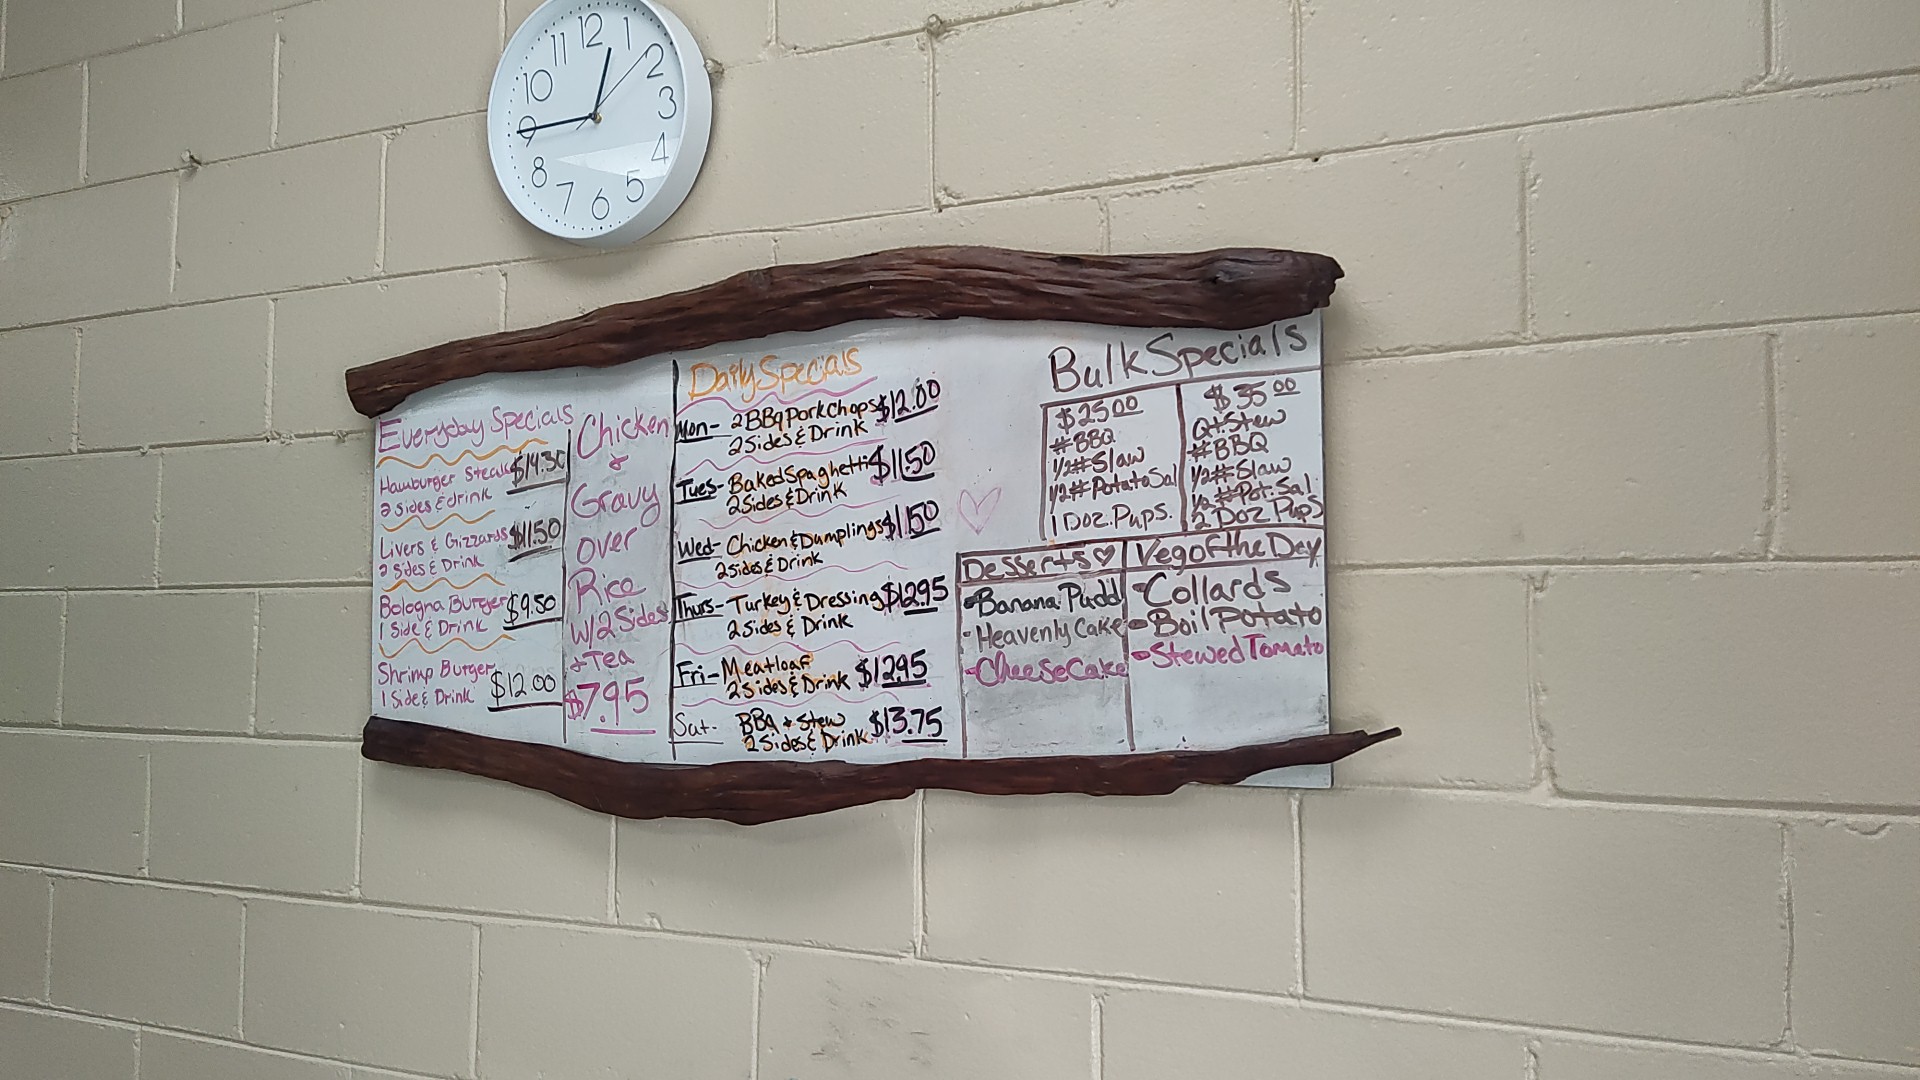 12
1
2
3
4
5
6
7
8
9
10
11
Everyday Specials
Hamburger Steak $14.30
2 sides & drink
Livers & Gizzards $11.50
2 Sides & Drink
Bologna Burger $9.50
1 Side & Drink
Shrimp Burger
1 Side & Drink $12.00
Chicken
&
Gravy
over
Rice
W/2 Sides
+ Tea
$7.95
Daily Specials
Mon- 2 BBQ Pork Chops $12.00
2 Sides & Drink
Tues- Baked Spaghetti $11.50
2 Sides & Drink
Wed- Chicken & Dumplings $11.50
2 Sides & Drink
Thurs- Turkey & Dressing $12.95
2 Sides & Drink
Fri- Meatloaf $12.95
2 Sides & Drink
Sat- BBQ + Stew $13.75
2 Sides & Drink
Bulk Specials
$25.00
#BBQ
1/2# Slaw
1/2# Potato Sal
1 Doz. Pups.
$35.00
Qt. Stew
#BBQ
1/2# Slaw
1/2 # Pot. Sal
2 Doz Pups
Desserts
- Banana Pudd
- Heavenly Cake
- Cheese Cake
Veg of the Day
- Collards
- Boil Potato
- Stewed Tomato